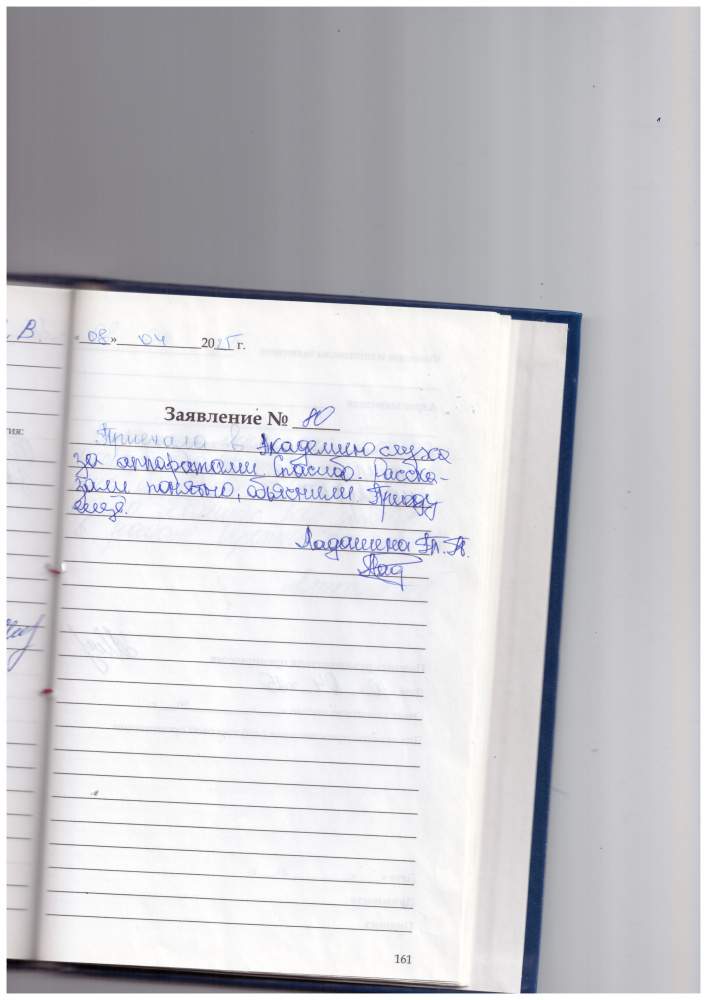 В.
«08» 04 2025 г.
Заявление № 80
тия:
Приехала в Академию слуха
за аппаратами. Спасибо. Расска-
зали понятно, объяснили. Приеду
ещё.
Ладашена
161